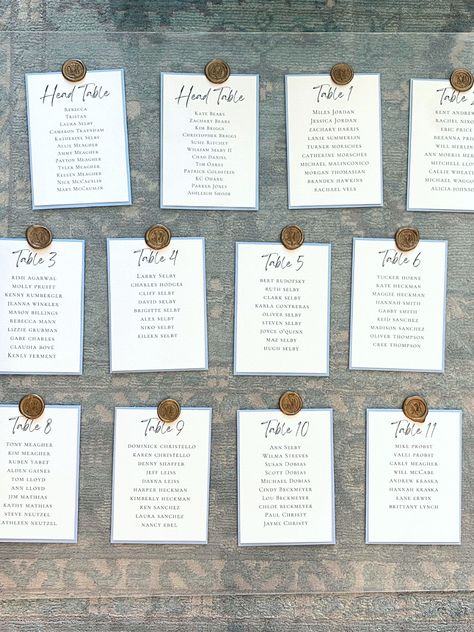 Head Table
Rebecca
Tristan
Laura Selby
Cameron Trayham
Katherine Selby
Allie Meagher
Amme Meagher
Payton Meagher
Tyler Meagher
Kelsey Meagher
Nick McCaulin
Mary McCaulin
Head Table
Kate Bears
Zachary Bears
Kim Briggs
Christopher Briggs
Susie Ritchey
William Seary II
Chad Daniel
Tim Oakes
Patrick Goldstein
KC Oharu
Parker Jones
Ashleigh Shoor
Table 1
Miles Jordan
Jessica Jordan
Zachary Harris
Lanie Summerlin
Turner Morsches
Catherine Morsches
Michael Malinconico
Morgan Thomasian
Branden Hawkins
Rachael Vels
Kent Andre
Rachel Nix
Eric Pric
Breanna Pri
Will Merlin
Ann Morris Mer
Mitchell Llo
Callie Wheat
Will Waggo
Alicia Johns
Table 3
Rishi Agarwal
Molly Pruitt
Kenny Rumberger
Jeanna Winkler
Mason Billings
Rebecca Mann
Lizzie Grubman
Gabe Charles
Claudia Bové
Kenly Ferment
Table 4
Larry Selby
Charles Hodges
Cliff Selby
David Selby
Brigitte Selby
Alex Selby
Niko Selby
Eileen Selby
Table 5
Bert Rudofsky
Ruth Selby
Clark Selby
Karla Contreras
Oliver Selby
Steven Selby
Joyce O'Quinn
Maz Selby
Hugh Selby
Table 6
Tucker Horne
Kate Heckman
Maggie Heckman
Hannah Smith
Gabby Smith
Reid Sanchez
Madison Sanchez
Oliver Sanchez
Cree Thompson
Table 8
Tony Meagher
Kim Meagher
Ruben Yabet
Alden Gaines
Tom Lloyd
Ann Lloyd
Jim Mathias
Kathy Mathias
Steve Neutzel
Kathleen Neutzel
Table 9
Dominick Christello
Karen Christello
Denny Shaffer
Jeff Leiss
Dayna Leiss
Harper Heckman
Kimberly Heckman
Ken Sanchez
Laura Sanchez
Nancy Ebel
Table 10
Ann Selby
Wilma Steeves
Susan Dobias
Scott Dobias
Michael Dobias
Cindy Beckmeyer
Lou Beckmeyer
Chloe Beckmeyer
Paul Christy
Jayme Christy
Table 11
Mike Probst
Valli Probst
Carly Meagher
Will McCabe
Andrew Kraska
Hannah Kraska
Lane Erwin
Brittany Lynch